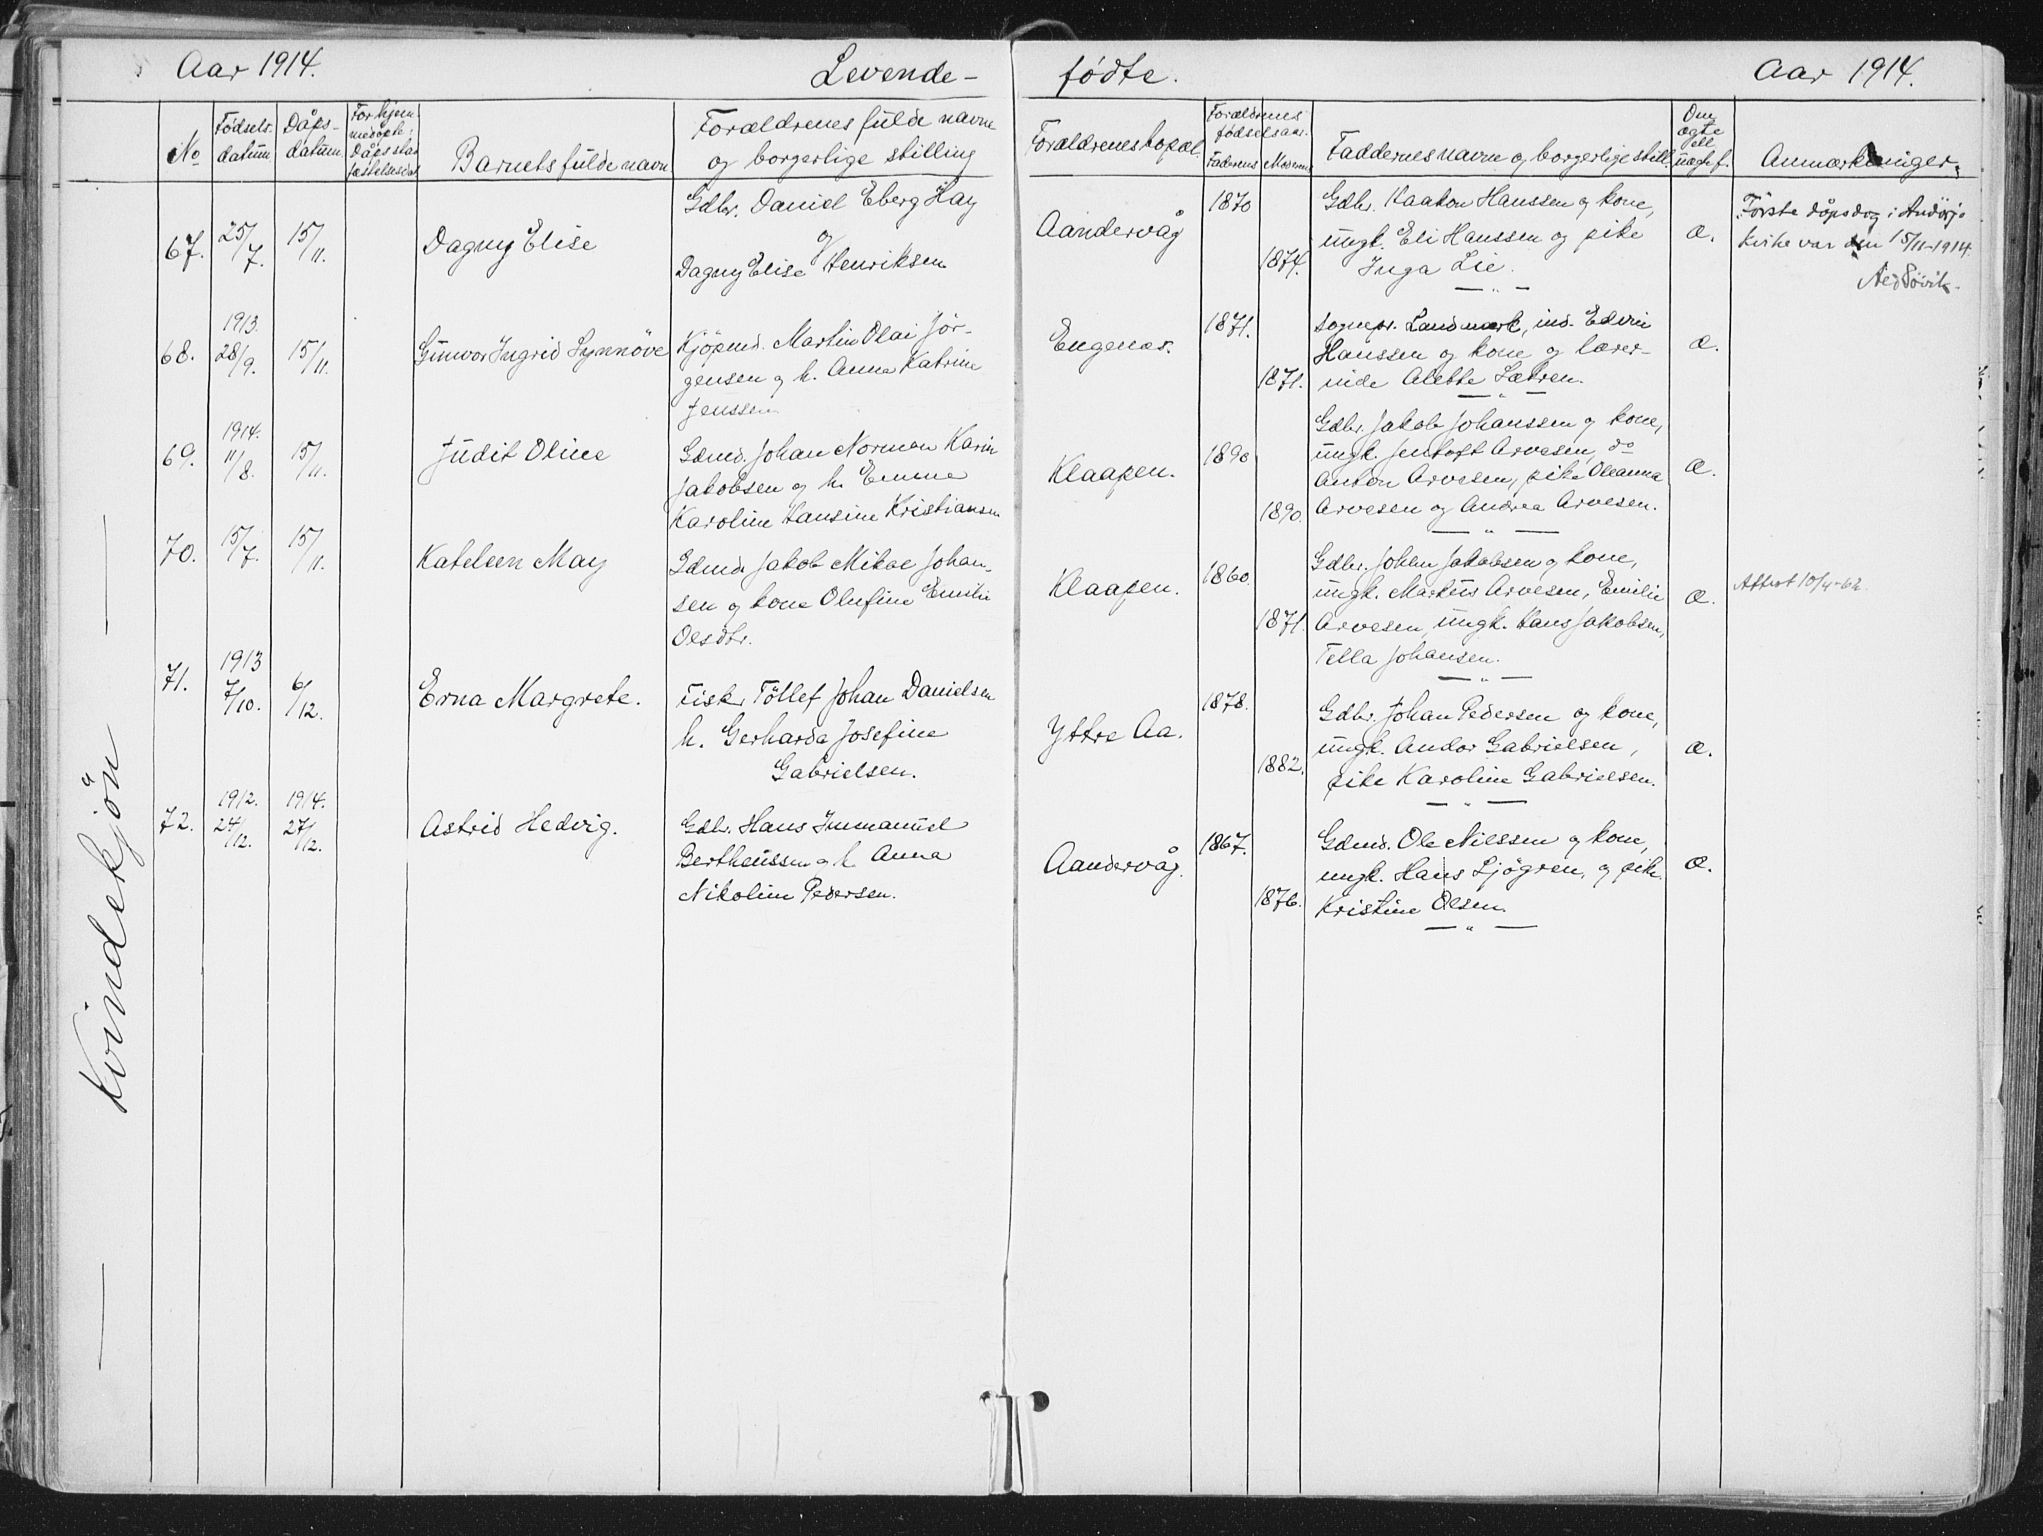 Aar 1914. Levende- fødte. Aar 1914.
No
Fødsels-
datum
Dåps-
datum
Forhjem-
medøpte:
Dåpsstad-
fæstelsesdat.
Barnets fulde navn
Forældrenes fulde navne
og borgerlige stilling
Forældrenes bopæl
Forældrenes
fødselsaar.
Faderens Moderens
Faddernes navne og borgerlige still.
Om
ægte
ell.
uægtef.
Anmærkninger.
Kvindekjön
67. 25/7. 15/11. Dagny Elise
Gdbr. Daniel Eberg Hay
og
Dagny Elise Henriksen
Aandervåg
1870
1874.
Gdbr. Haakon Hanssen og kone,
ungk. Eli Hanssen og pike
Inga Lie.
æ.
Første dåpsdag i Andørja
kirke var den 15/11-1914.
68. 1913. 28/9. 15/11. Gunvor Ingrid Synnöve
Kjöpmd. Martin Olai Jör-
gensen og h. Anna Katrine
Jenssen
Engenes.
1871.
1871.
Sognepr. Landmark, ind. Edvin
Hanssen og kone og lærer-
inde Alette Sætren.
æ.
69. 1914. 11/8. 15/11. Judit Oline
Gdmd. Johan Norman Karin
Jakobsen og h. Emma
Karoline Hansine Kristiansen
Klaapen.
1890
1890.
Gdbr. Jakob Johanssen og kone,
ungk. Jentoft Arvesen, do
Anton Arvesen, pike Oleanna
Arvesen og Andrea Arvesen.
æ.
70. 15/7. 15/11. Kateleen May
Gdmd. Jakob Mikal Johan-
sen og kone Olufine Emilie
Olsdtr.
Klaapen.
1860.
1871.
Gdbr. Johan Jakobsen og kone,
ungk. Markus Arvesen, Emilie
Arvesen, ungk. Hans Jakobsen,
Tella Johansen.
æ.
Attest 10/4-62.
71. 1913 7/10. 6/12. Erna Margrete.
Fisk. Töllef Johan Danielsen
h. Gerharda Josefine
Gabrielsen.
Yttre Aa.
1878.
1882.
Gdbr. Johan Pedersen og kone,
ungk. Andor Gabrielsen,
pike Karoline Gabrielsen.
æ.
72. 1912. 24/12. 1914. 27/12. Astrid Hedvig.
Gdbr. Hans Immanuel
Bertheussen og h. Anna
Nikoline Pedersen.
Aandervåg.
1867.
1876.
Gdmd. Ole Nilssen og kone,
ungk. Hans Sjögren, og pike
Kristine Olsen.
æ.